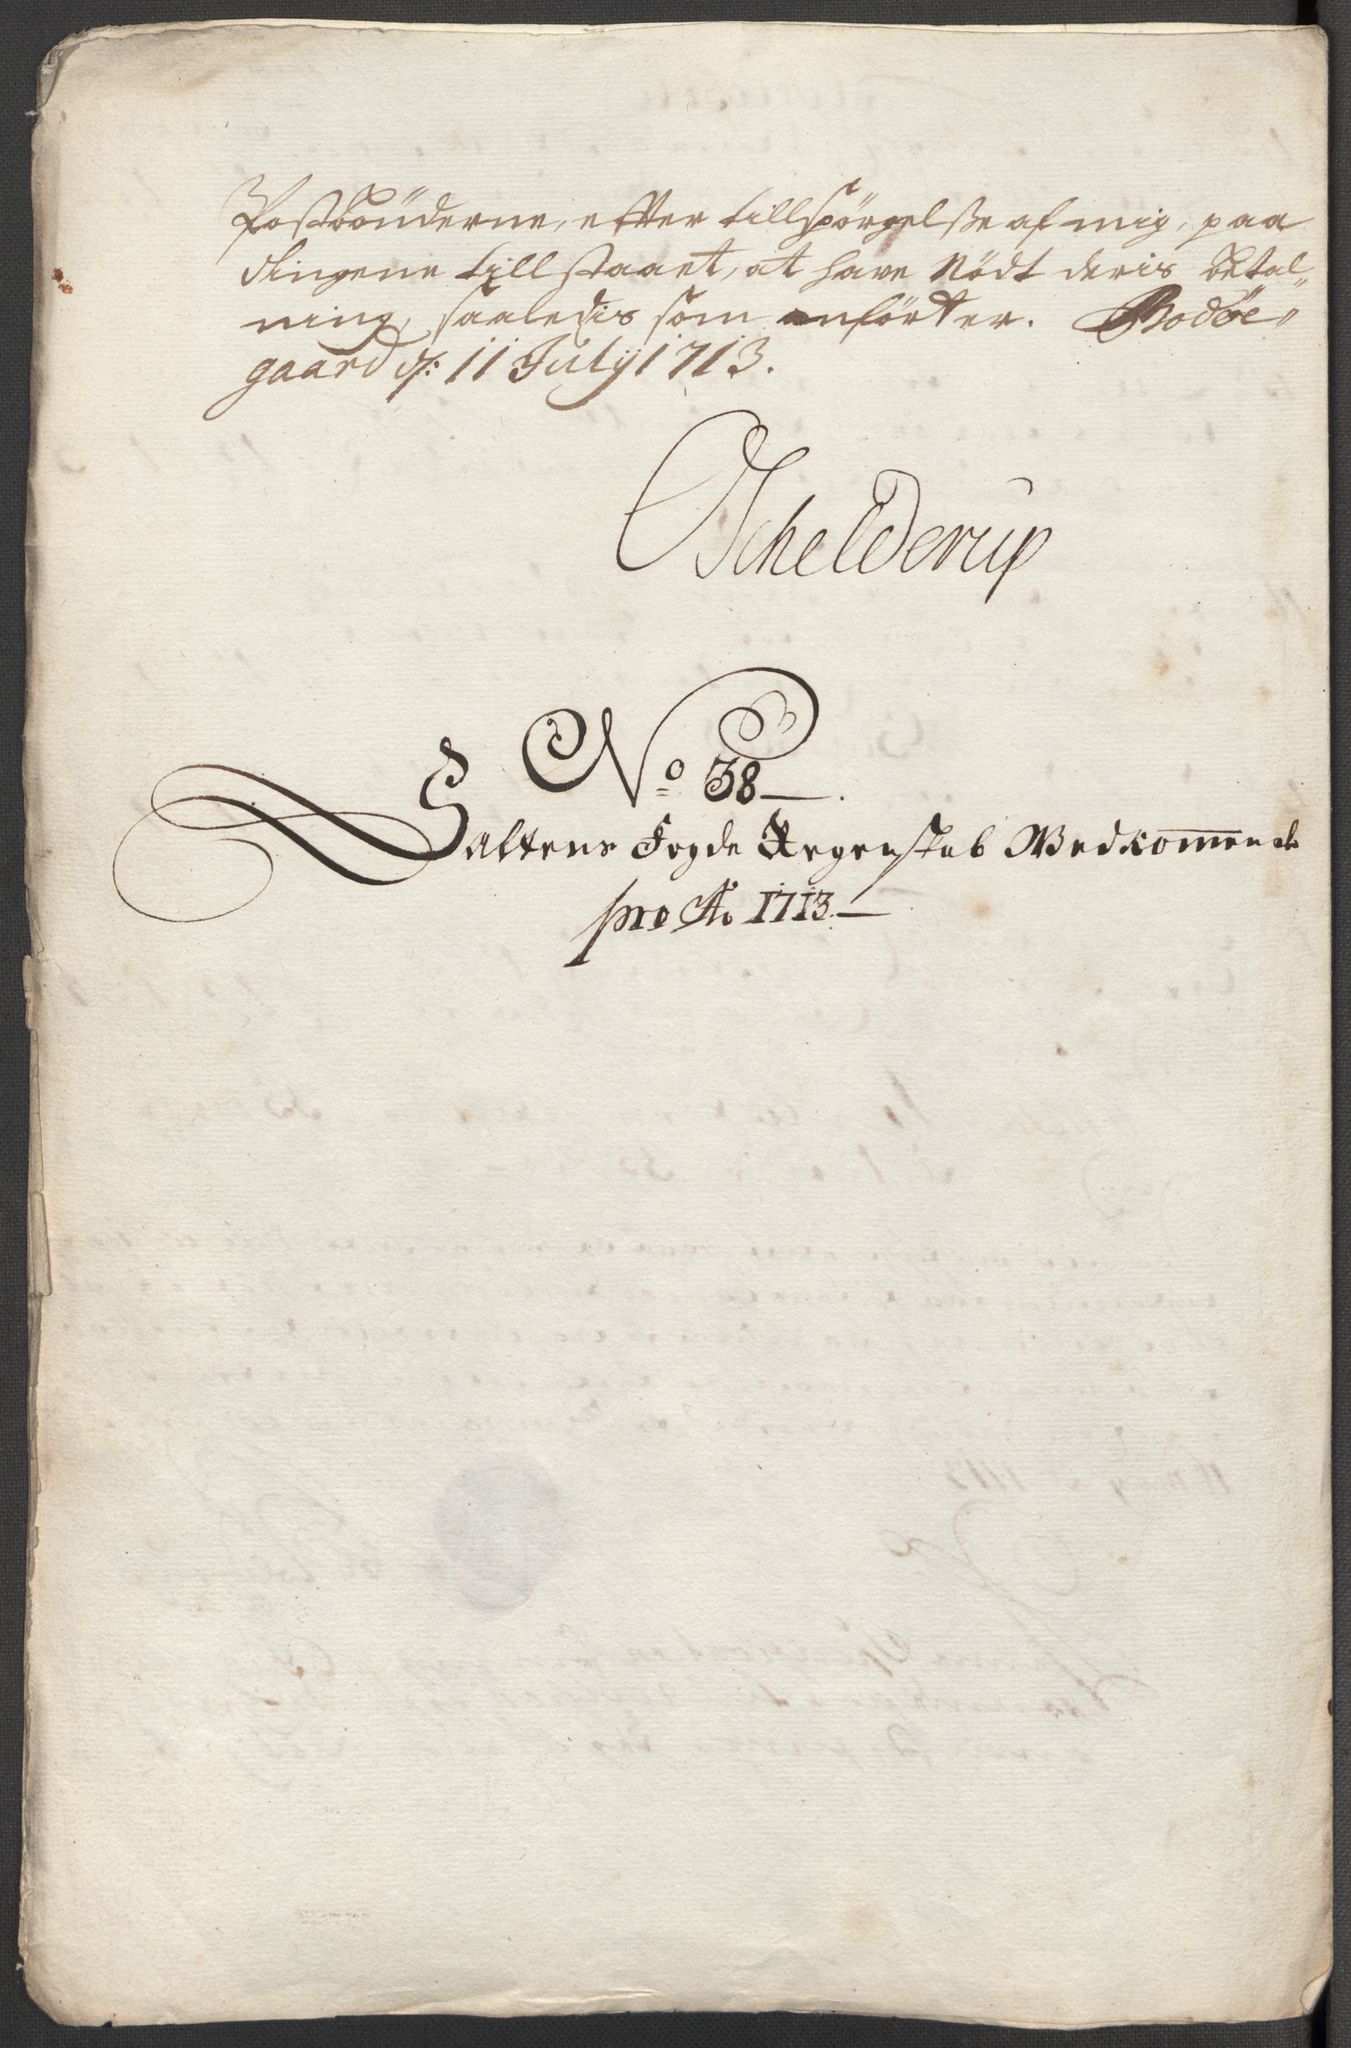 Postbönderne, efter tillspörgelse af mig, paa
tingene tillstaaet, at have Nödt deris betal„
ning, saaledis som anförter. Bodöe„
gaard d: 11 July 1713.
OSchelderup
No 38
Saltens Fogde Regenskab Vedkomende
pro Ao 1713